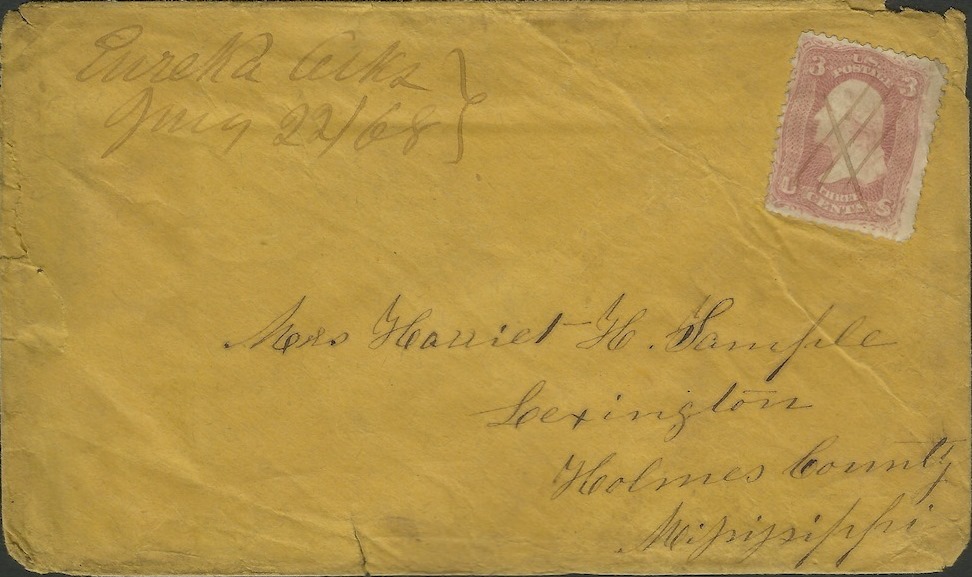 Eureka Arks
Jany 22/68
3 U.S. 3
POSTAGE
THREE
CENTS
U S
Mrs Harriet H. Sample
Lexington
Holmes County
Mississippi